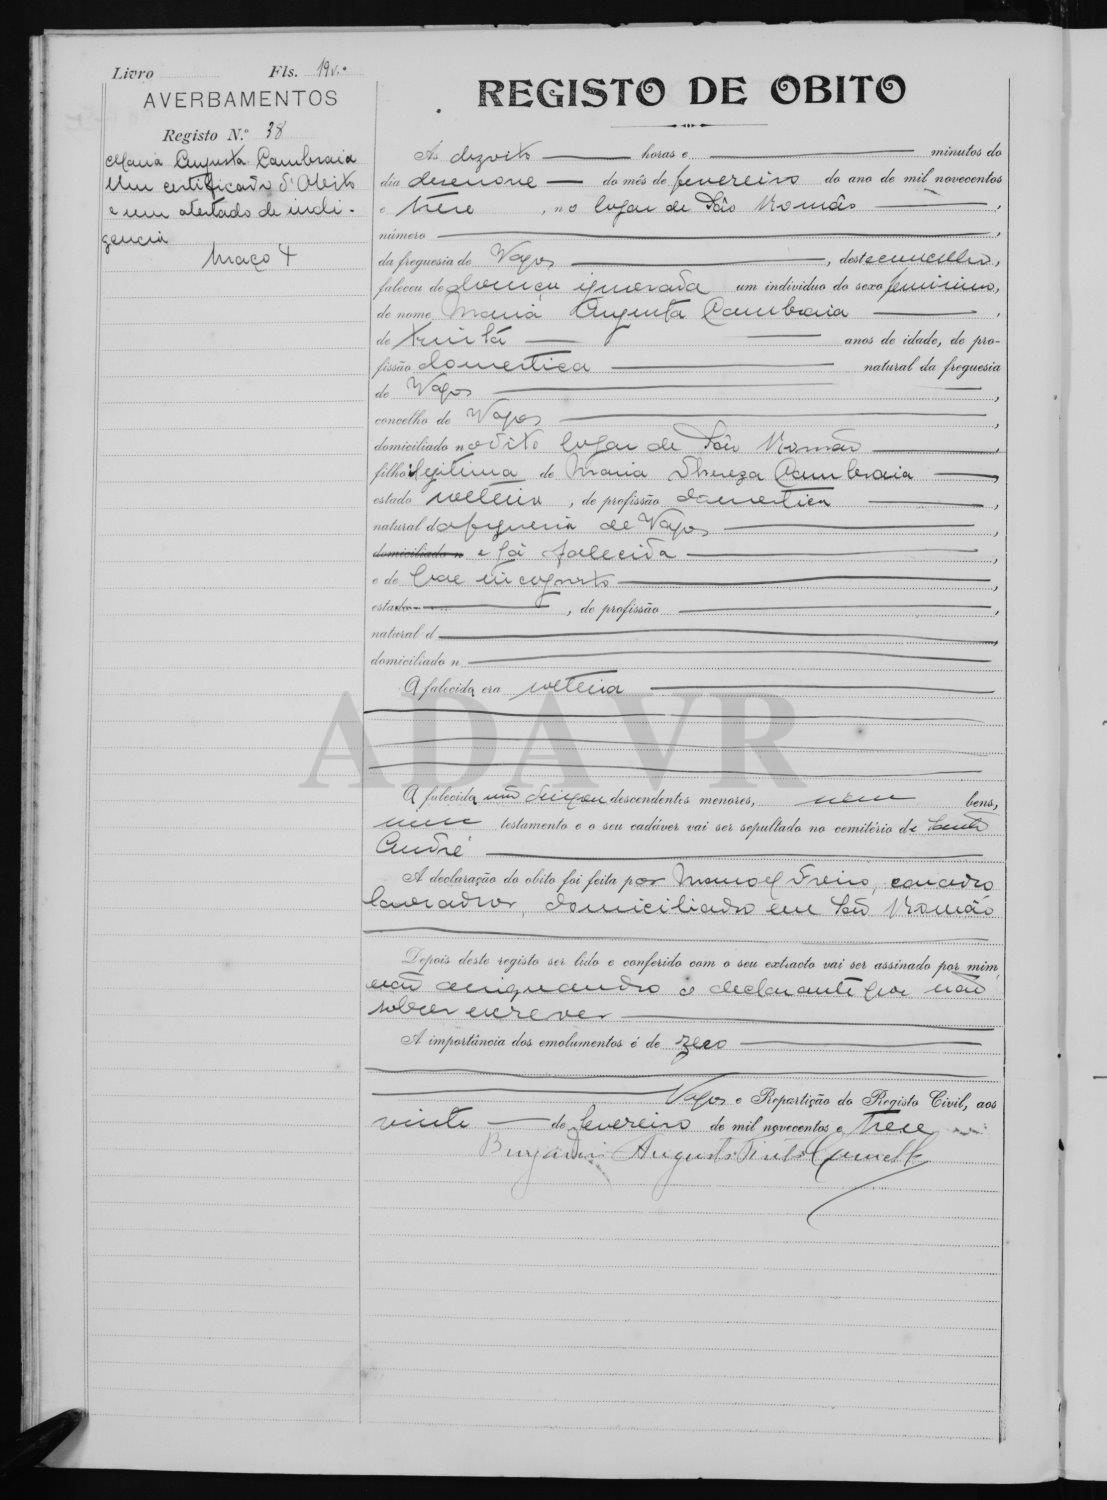 Livro Fls. 19v.º
AVERBAMENTOS
Registo N.º 38
Maria Augusta Cambraia
Um certificado d'Obito
e um atestado de indi-
gencia
Maço 4
REGISTO DE OBITO
Ás dezoito horas e minutos do
dia desenove do mês de fevereiro do ano de mil novecentos
e trese, no lugar de São Romão,
número
da freguesia de Vagos, deste concelho,
faleceu de doença ignorada um individuo do sexo feminino,
de nome Maria Augusta Cambraia,
de trinta anos de idade, de pro-
fissão domestica natural da freguesia
de Vagos,
concelho de Vagos,
domiciliado no dito lugar de São Romão,
filho ilegitima de Maria Thereza Cambraia,
estado solteira, de profissão domestica,
natural da freguesia de Vagos,
domiciliado n e já falecida,
e de Pae incognito,
estado, de profissão,
natural d,
domiciliado n
A falecida era solteira
ADAVR
A falecida não deixou descendentes menores, nem bens,
nem testamento e o seu cadáver vai ser sepultado no cemitério de Santo
André
A declaração do obito foi feita por Manoel Freire, casado
lavrador, domiciliado em São Romão
Depois deste registo ser lido e conferido com o seu extracto vai ser assinado por mim,
não assignando o declarante por não
saber escrever
A importância dos emolumentos é de zero
Vagos e Repartição do Registo Civil, aos
vinte de fevereiro de mil novecentos e trese
Augusto